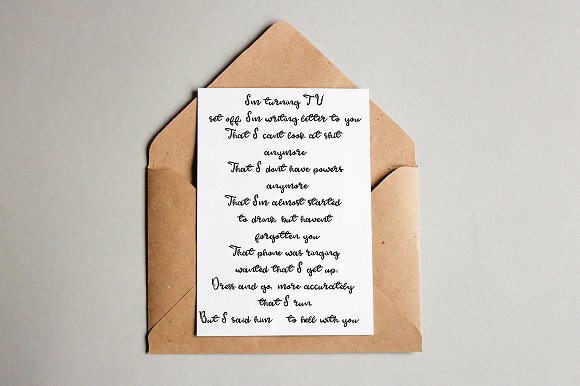 Im turning TV
set off, Im writing letter to you
That I cant look at shit
anymore
That I dont have powers
anymore
That Im almost started
to drink, but havent
forgotten you
That phone was ringing
wanted that I get up,
Dress and go, more accurately
that I run
But I said him to hell with you